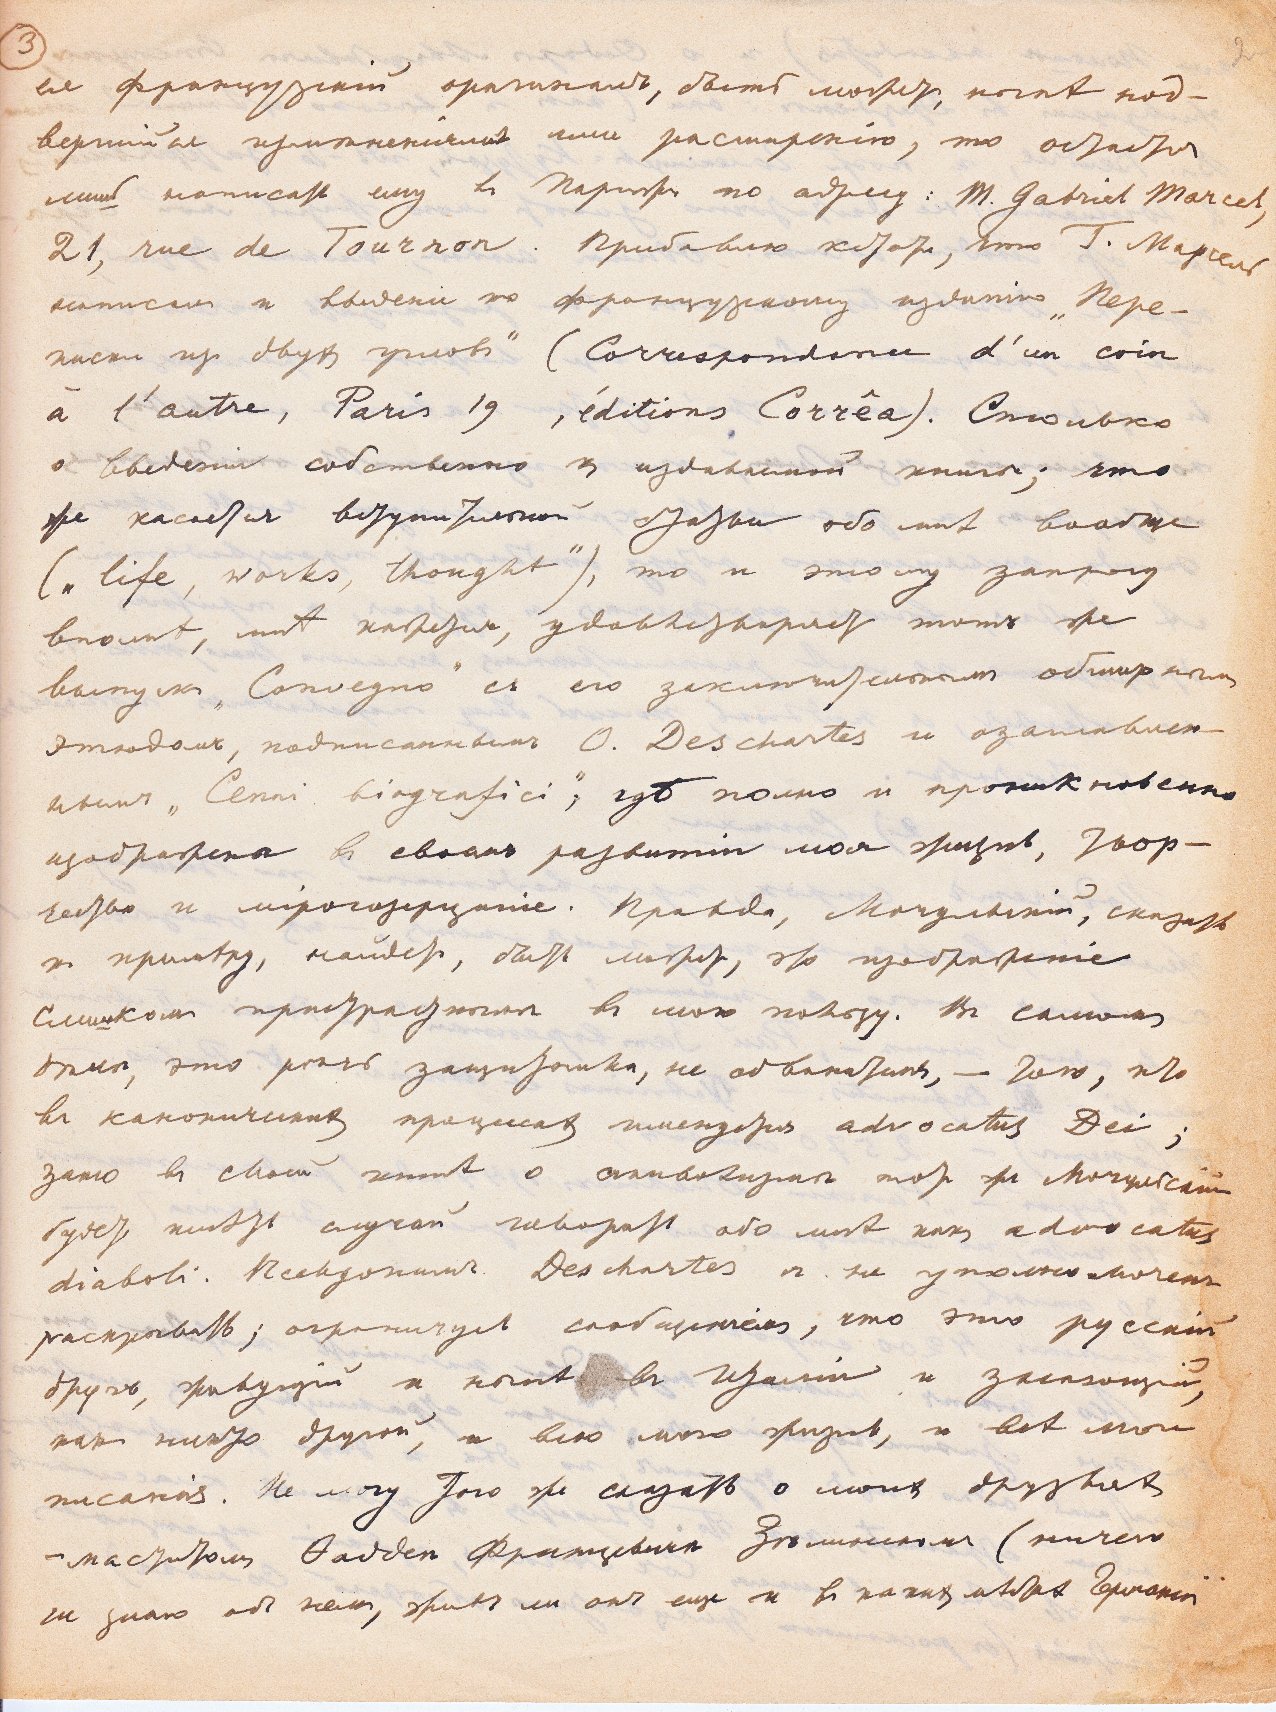 3
ее французскій оригиналъ, быть можетъ, нынѣ под-
вергшійся измѣненіямъ или расширенію, то остается
лишь написать ему въ Парижъ по адресу: M. Gabriel Marcel,
21, rue de Tournon. Прибавлю кстати, что Г. Марсель
написалъ и введеніе ко французскому изданію „Пере-
писки изъ двухъ угловъ" (Correspondance d'un coin
à l'autre, Paris 19 , éditions Corrêa). Столько
о введеніи собственно къ издаваемой книгѣ; что
же касается вступительной статьи обо мнѣ вообще
(„life, works, thought"), то и этому запросу
вполнѣ, мнѣ кажется, удовлетворяетъ тотъ же
выпускъ „Convegno" съ его заключительнымъ обширнымъ
этюдомъ, подписаннымъ O. Deschartes и озаглавлен-
нымъ „Cenni biografici"; гдѣ полно и проникновенно
изображены въ своемъ развитіи моя жизнь, твор-
чество и міросозерцаніе. Правда, Мочульскій, сказать
къ примѣру, найдетъ, быть можетъ, это изображеніе
слишкомъ пристрастнымъ въ мою пользу. Въ самомъ
дѣлѣ, это рѣчь защитника, не адвоката, — того, что
въ каноническихъ процессахъ именуется advocatus Dei;
зато въ своей книгѣ о символизмѣ тотъ же Мочульскій
будетъ имѣть случай говорить обо мнѣ какъ advocatus
diaboli. Псевдонимъ Deschartes я не уполномоченъ
раскрывать; ограничусь сообщеніемъ, что это русскій
другъ, живущій и нынѣ въ Италіи и знающій,
какъ никто другой, и всю мою жизнь, и всѣ мои
писанія. Не могу того же сказать о моихъ друзьяхъ
— маститомъ Ѳаддеѣ Францевичѣ Зѣлинскомъ (ничего
не знаю объ немъ, живъ ли онъ еще и въ какихъ мѣстахъ Германіи